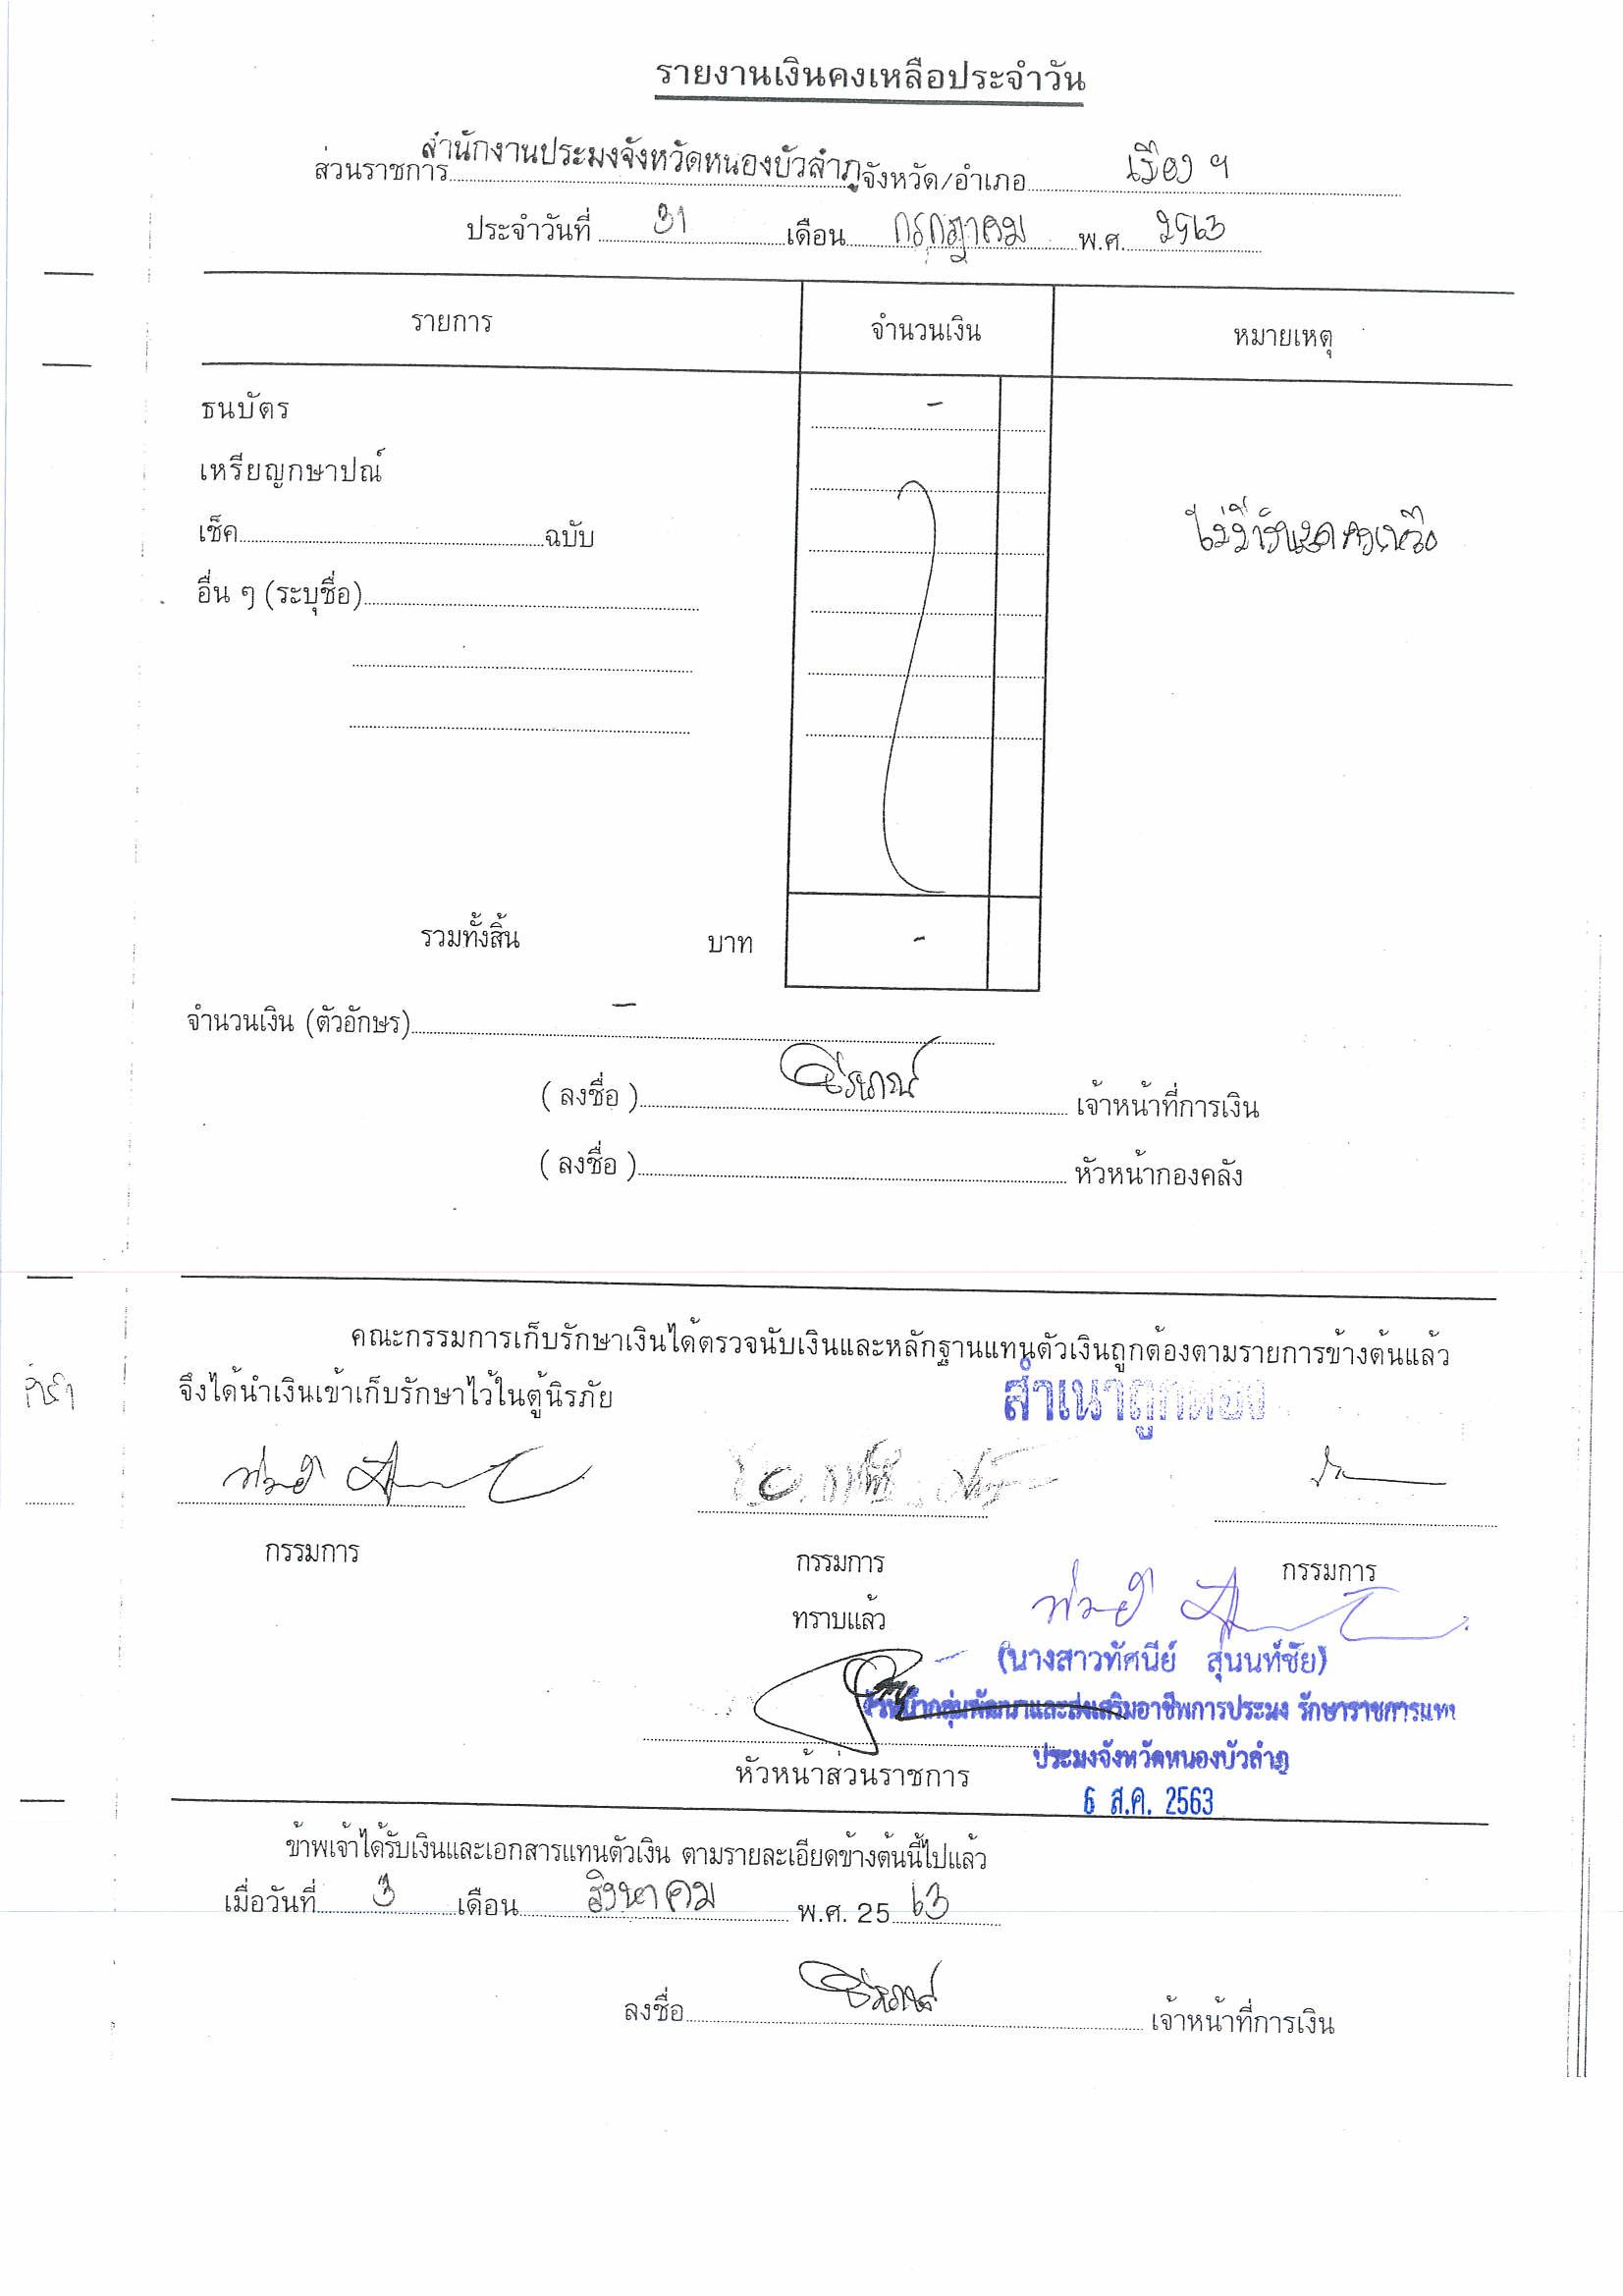 รายงานเงินคงเหลือประจำวัน
ส่วนราชการ สำนักงานประมงจังหวัดหนองบัวลำภู จังหวัด/อำเภอ เมือง ฯ
ประจำวันที่ 31 เดือน กรกฎาคม พ.ศ. 2563
รายการ จำนวนเงิน หมายเหตุ
ธนบัตร -
เหรียญกษาปณ์
เช็ค ฉบับ ไม่มีเงินสดคงเหลือ
อื่น ๆ (ระบุชื่อ)
รวมทั้งสิ้น บาท -
จำนวนเงิน (ตัวอักษร) -
( ลงชื่อ ) เจ้าหน้าที่การเงิน
( ลงชื่อ ) หัวหน้ากองคลัง
คณะกรรมการเก็บรักษาเงินได้ตรวจนับเงินและหลักฐานแทนตัวเงินถูกต้องตามรายการข้างต้นแล้ว
จึงได้นำเงินเข้าเก็บรักษาไว้ในตู้นิรภัย
สำเนาถูกต้อง
กรรมการ กรรมการ กรรมการ
ทราบแล้ว
(นางสาวทัศนีย์ สุนนท์ชัย)
หัวหน้ากลุ่มพัฒนาและส่งเสริมอาชีพการประมง รักษาราชการแทน
ประมงจังหวัดหนองบัวลำภู
หัวหน้าส่วนราชการ
6 ส.ค. 2563
ข้าพเจ้าได้รับเงินและเอกสารแทนตัวเงิน ตามรายละเอียดข้างต้นนี้ไปแล้ว
เมื่อวันที่ 3 เดือน สิงหาคม พ.ศ. 25 63
ลงชื่อ เจ้าหน้าที่การเงิน